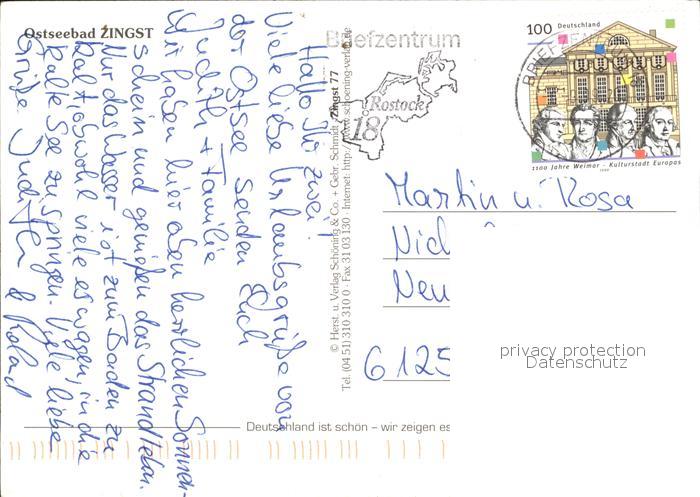 Ostseebad ZINGST
Hallo Ihr zwei,
Viele liebe Urlaubsgrüße von
der Ostsee senden Euch
Judith + Familie
Wir haben hier oben herrlichen Sonnen-
schein und genießen das Strandleben.
Nur das Wasser ist zum Baden zu
kalt, obwohl viele es wagen, in die
kalte See zu springen. Viele liebe
Grüße Judith & Roland
© Herst. u. Verlag Schöning & Co. + Gebr. Schmidt Zingst 77
Tel. (04 51) 310 310 0 · Fax 31 03 130 · Internet: http://www.schoening-verlag.de
Briefzentrum
Rostock
18
100 Deutschland
BRIEFZEN
1100 Jahre Weimar - Kulturstadt Europas
1999
Martin u. Rosa
Nid
Neu
6125
privacy protection
Datenschutz
Deutschland ist schön – wir zeigen es